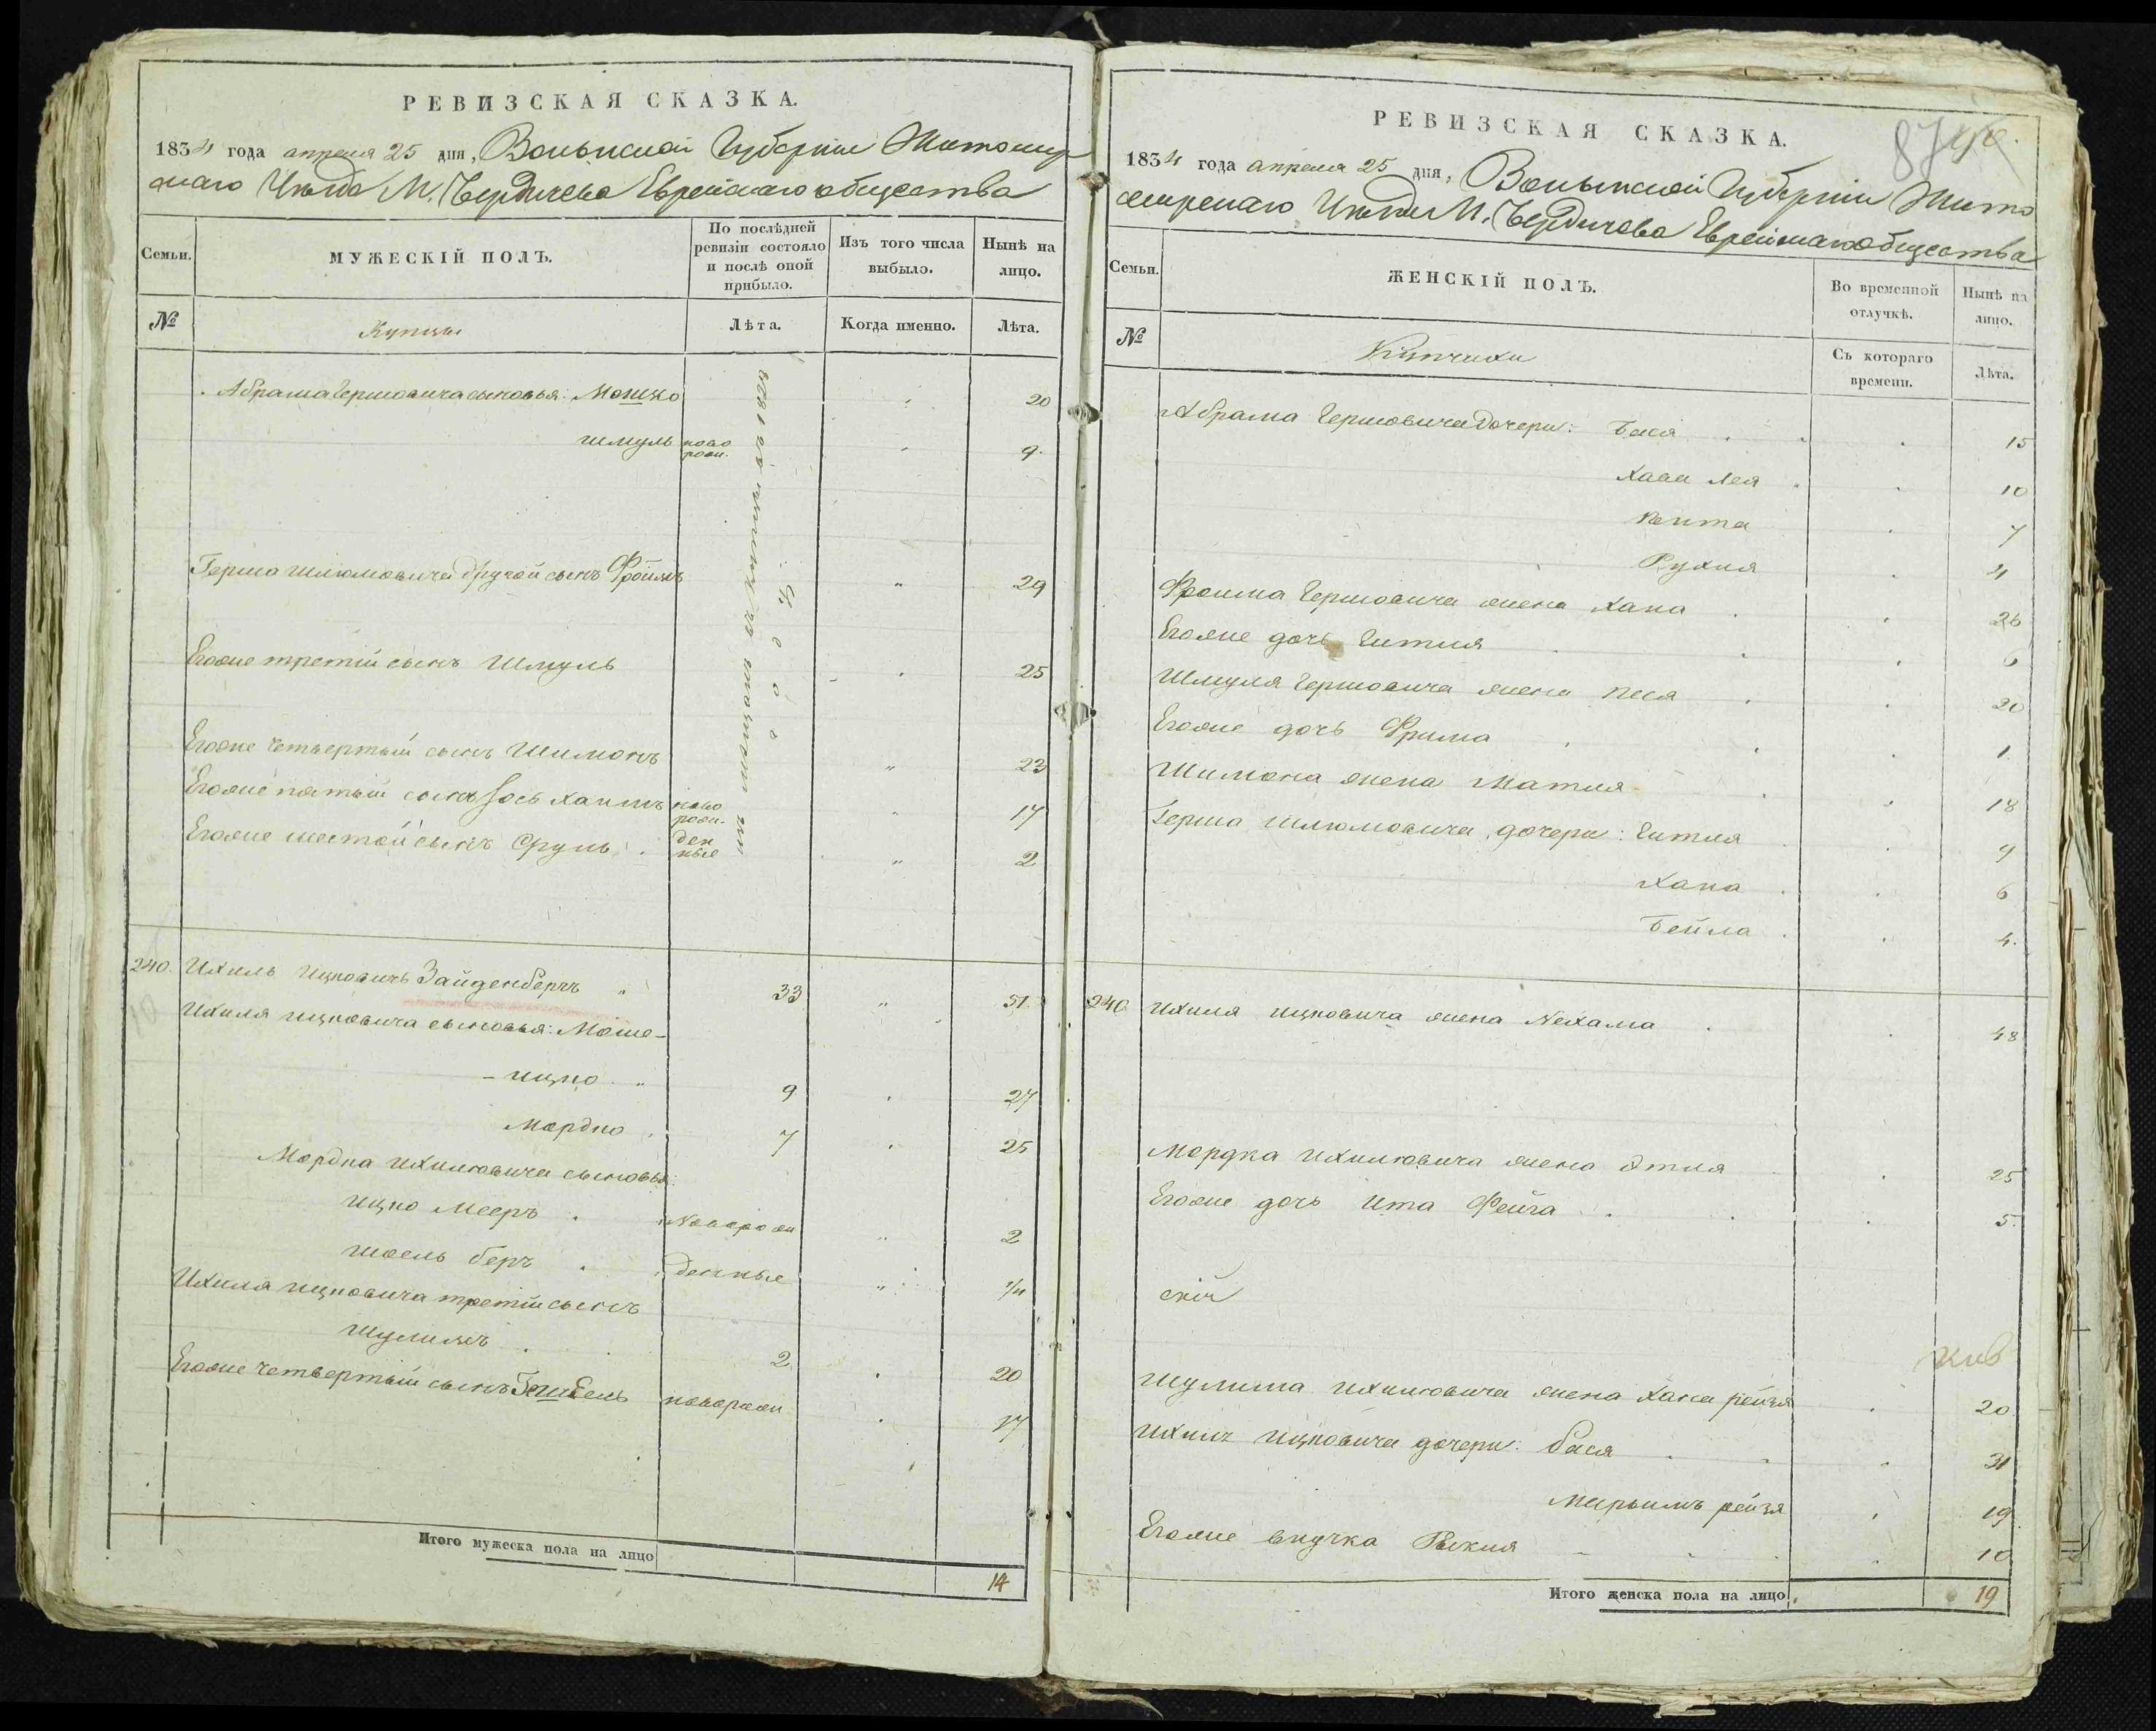 РЕВИЗСКАЯ СКАЗКА.
1834 года апреля 25 дня, Волынской Губерніи Житомир
скаго Уезда М. Бердичева Еврейскаго общества
Семьи.
МУЖЕСКІЙ ПОЛЪ.
По послѣдней ревизіи состояло и послѣ оной прибыло.
Изъ того числа выбыло.
Нынѣ на лицо.
№
Купцы
Лѣта.
Когда именно.
Лѣта.
Абрама Гершовича сыновья: Мошко 20
Шмуль ново рож. 9
Герша Шлюмовича другой сынъ Фроимъ 29
Егоже третій сынъ Шмуль 25
Егоже четвертый сынъ Шимонъ 23
Егоже пятый сынъ Іось Хаимъ ново рож. 17
Егоже шестой сынъ Сруль ден ные 2
240. Ихиль Ицковичъ Зайденбергъ 33 51
Ихиля Ицковича сыновья: Моше-
- Ицко 9 27
Мордко 7 25
Мордка Ихилювича сыновья:
Ицко Мееръ Поворож 2
Шоель Беръ денные 1/4
Ихиля Ицковича третій сынъ
Шулимъ 2 20
Егоже четвертый сынъ новорож 17
Итого мужеска пола на лицо 14
РЕВИЗСКАЯ СКАЗКА.
87
1834 года апреля 25 дня, Волынской Губерніи Жито
мирскаго Уезда М. Бердичева Еврейскаго общества
Семьи.
ЖЕНСКІЙ ПОЛЪ.
Во временной отлучкѣ.
Нынѣ на лицо.
№
Купчихи
Съ котораго времени.
Лѣта.
Абрама Гершовича дочери: Бася 15
Хава Лея 10
Рухля 4
Фроима Гершовича жена Хана 26
Егоже дочь Гитля 6
Шмуля Гершовича жена Песя 20
Егоже дочь Фрима 1
Шимона жена Матля 18
Герша Шлюмовича дочери: Гитля 9
Хана 6
Бейла 4.
240 Ихиля Ицковича жена Нехама 48
Мордка Ихилювича жена Этля 25
Егоже дочь Ита Фейга 5.
скій
Шулима Ихилювича жена Хана рейзя 20
Ихиля Ицковича дочери: Бася 31
Марьямъ рейзя 19
Егоже внучка 10
Итого женска пола на лицо 19